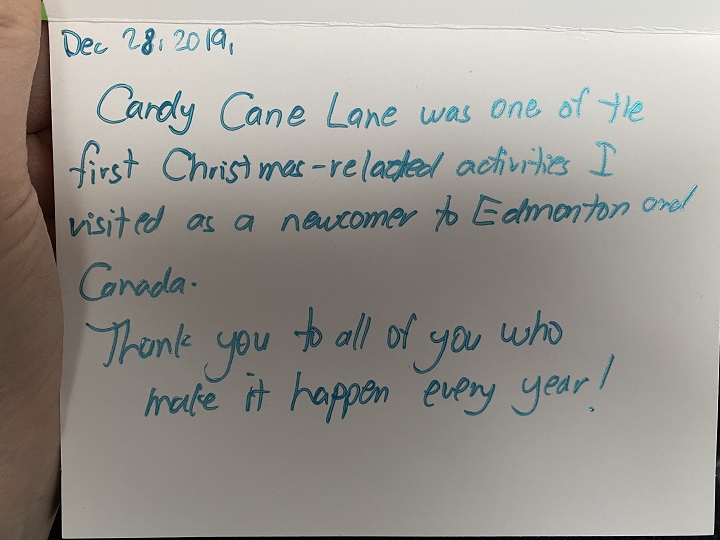 Dec 28, 2019,
Candy Cane Lane was one of the
first Christmas-related activities I
visited as a newcomer to Edmonton and
Canada.
Thank you to all of you who
make it happen every year!